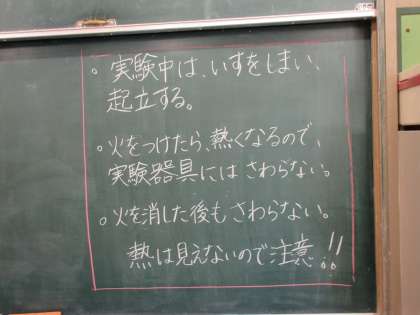 。実験中は、いすをしまい、
起立する。
。火をつけたら、熱くなるので、
実験器具にはさわらない。
。火を消した後もさわらない。
熱は見えないので注意!!